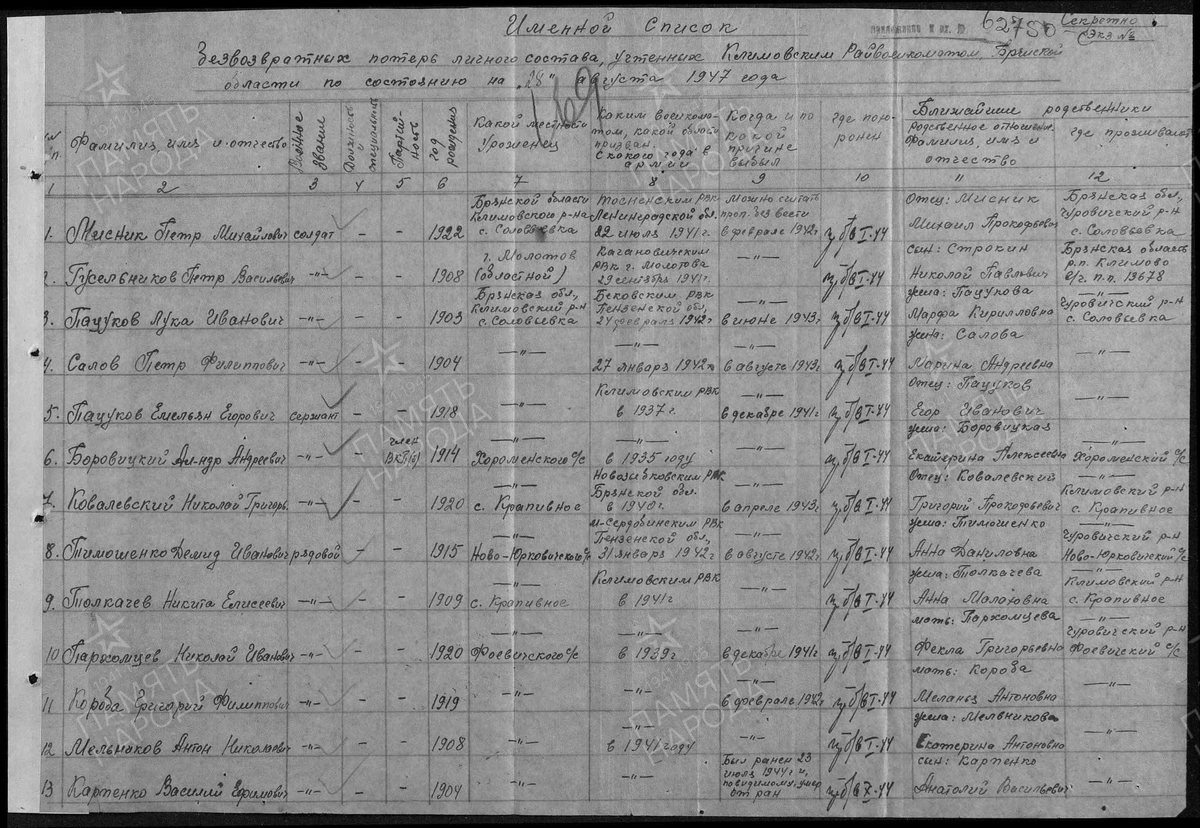 Именной Список
62750
Секретно
Экз №
Безвозвратных потерь личного состава, учтенных Климовским Райвоенкоматом, Брянской
области по состоянию на "28" августа 1947 года
169
№ п/п
Фамилия, имя и отчество
Военное звание
Должность и специальность
Партийность
год рождения
Какой местности Уроженец
Каким военкоматом, какой области призван. С какого года в армии
Когда и по какой причине выбыл
где похоронен
Ближайшие родственники
родственное отношен. Фамилия, имя и отчество
где проживают
1 2 3 4 5 6 7 8 9 10 11 12
1. Мисник Петр Михайлович солдат - - 1922 Брянской области Климовского р-на с. Соловьевка Тосненским РВК Ленинградской обл. 22 июля 1941г. Можно считать проп. без вести в феврале 1942г Отец: Мисник Михаил Прокофьевич Брянская обл, Чуровичский р-н с. Соловьевка
2. Гусельников Петр Васильевич -"- - - 1908 г. Молотов (областной) Кагановичским РВК г. Молотова 29 сентября 1941г. -"- сын: Строкин Николай Павлович Брянская область р.п. Климово в/г. п.п. 19678
3. Пацуков Лука Иванович -"- - - 1903 Брянская обл, Климовский р-н с. Соловьевка Бековским РВК Пензенской обл, 24 февраля 1942г -"- в июне 1943г жена: Пацукова Марфа Кирилловна -"- Чуровичский р-н с. Соловьевка
4. Салов Петр Филиппович -"- - - 1904 -"- -"- 27 января 1942г. -"- в августе 1943г жена: Салова Марина Андреевна -"-
5. Пацуков Емельян Егорович сержант - - 1918 -"- Климовским РВК в 1937г. -"- в декабре 1941г Отец: Пацуков Егор Иванович -"-
6. Боровицкий Ал-ндр Андреевич -"- - член ВКП(б) 1914 -"- Хороменского с/с -"- в 1935 году -"- жена: Боровицкая Екатерина Алексеевна -"- Хороменский с/с
7. Ковалевский Николай Григорь. -"- - - 1920 с. Крапивное Новозыбковским РВК Брянской обл. в 1940г. -"- в апреле 1943г Отец: Ковалевский Григорий Прокофьевич Климовский р-н с. Крапивное
8. Тимошенко Демид Иванович рядовой - - 1915 -"- Ново-Юрковичского с/с М-Сердобинским РВК Пензенской обл, 31 января 1942г -"- в августе 1942г жена: Тимошенко Анна Даниловна -"- Чуровичский р-н Ново-Юрковичский с/с
9. Толкачев Никита Елисеевич -"- - - 1909 -"- с. Крапивное Климовским РВК в 1941г -"- жена: Толкачева Анна Климовский р-н с. Крапивное
10 Пархомцев Николай Иванович -"- - - 1920 -"- Фоевичского с/с -"- в 1939г -"- в декабре 1941г мать: Пархомцева Фекла Григорьевна -"- Чуровичский р-н Фоевичский с/с
11 Короба Григорий Филиппович -"- - - 1919 -"- -"- -"- в феврале 1942г мать: Короба Меланья Антоновна -"-
12 Мельников Антон Николаевич -"- - - 1908 -"- -"- в 1941 году -"- жена: Мельникова Екатерина Антоновна -"-
13 Карпенко Василий Ефимович -"- - - 1904 -"- -"- Был ранен 23 июля 1944г и, повидимому, умер от ран сын: Карпенко Анатолий Васильевич -"-
ПАМЯТЬ НАРОДА